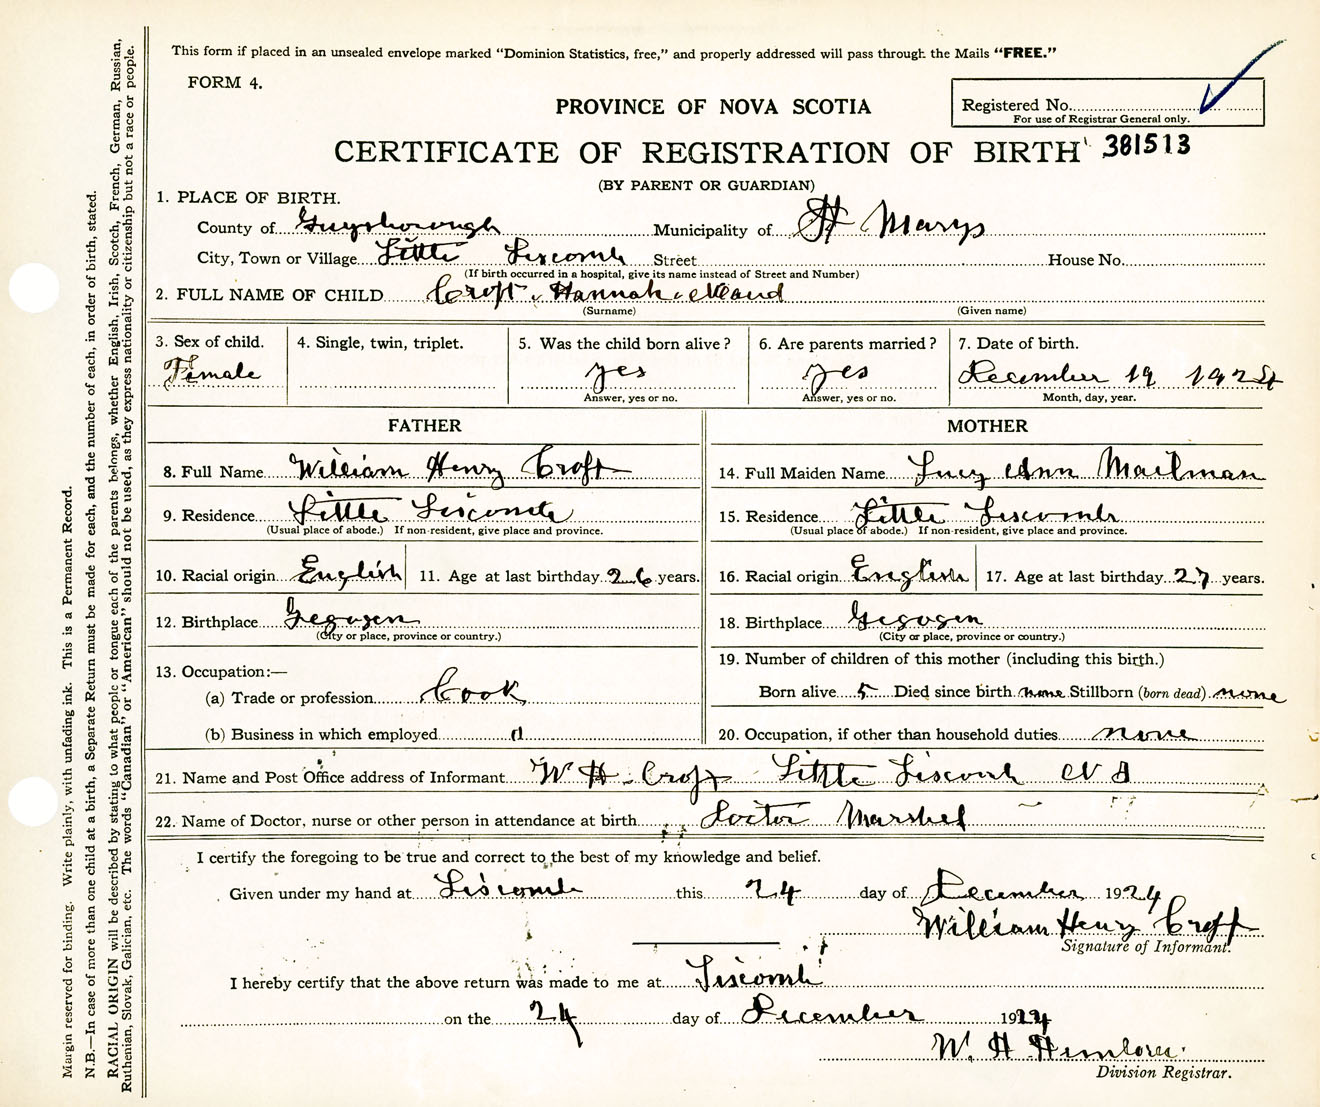 This form if placed in an unsealed envelope marked “Dominion Statistics, free,” and properly addressed will pass through the Mails “FREE.”
FORM 4.
PROVINCE OF NOVA SCOTIA
Registered No.
For use of Registrar General only.
CERTIFICATE OF REGISTRATION OF BIRTH 381513
(BY PARENT OR GUARDIAN)
1. PLACE OF BIRTH.
County of Guysborough Municipality of St Marys
City, Town or Village Little Liscomb Street House No.
(If birth occurred in a hospital, give its name instead of Street and Number)
2. FULL NAME OF CHILD Croft, Hannah Maud
(Surname) (Given name)
3. Sex of child. 4. Single, twin, triplet. 5. Was the child born alive? 6. Are parents married? 7. Date of birth.
Female yes yes December 19 1924
Answer, yes or no. Answer, yes or no. Month, day, year.
FATHER MOTHER
8. Full Name William Henry Croft 14. Full Maiden Name Lucy Ann Mailman
9. Residence Little Liscomb 15. Residence Little Liscomb
(Usual place of abode.) If non-resident, give place and province. (Usual place of abode.) If non-resident, give place and province.
10. Racial origin English 11. Age at last birthday 26 years. 16. Racial origin English 17. Age at last birthday 27 years.
12. Birthplace Gegogen 18. Birthplace Gegogen
(City or place, province or country.) (City or place, province or country.)
13. Occupation:— 19. Number of children of this mother (including this birth.)
(a) Trade or profession Cook Born alive 5 Died since birth none Stillborn (born dead) none
(b) Business in which employed 20. Occupation, if other than household duties none
21. Name and Post Office address of Informant W H Croft Little Liscomb N S
22. Name of Doctor, nurse or other person in attendance at birth Doctor Marshel
I certify the foregoing to be true and correct to the best of my knowledge and belief.
Given under my hand at Liscomb this 24 day of December 1924
William Henry Croft
Signature of Informant.
I hereby certify that the above return was made to me at Liscomb
on the 24 day of December 1924
W. H. Hemlow
Division Registrar.
Margin reserved for binding. Write plainly, with unfading ink. This is a Permanent Record.
N.B.—In case of more than one child at a birth, a Separate Return must be made for each, and the number of each, in order of birth, stated.
RACIAL ORIGIN will be described by stating to what people or tongue each of the parents belongs, whether English, Irish, Scotch, French, German, Russian,
Ruthenian, Slovak, Galician, etc. The words “Canadian” or “American” should not be used, as they express nationality or citizenship but not a race or people.